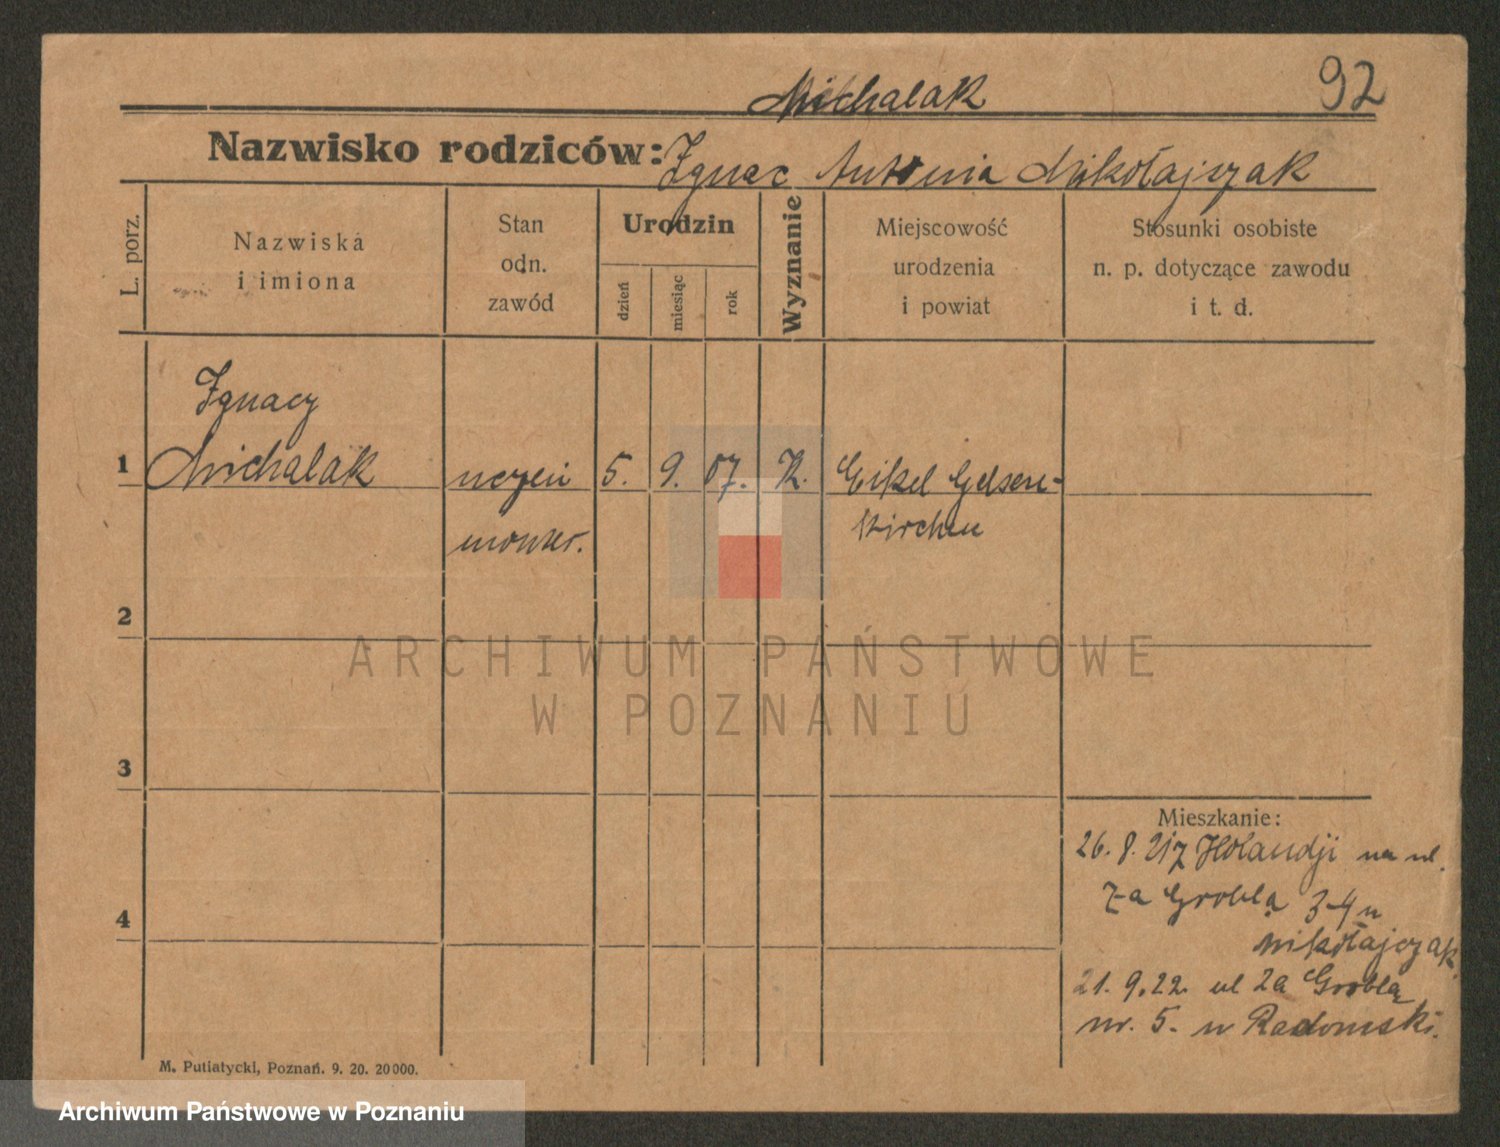 92
Michalak
Nazwisko rodziców: Ignac Antonia Mikołajczak
L. porz.
Nazwiska
i imiona
Stan
odn.
zawód
Urodzin
dzień
miesiąc
rok
Wyznanie
Miejscowość
urodzenia
i powiat
Stosunki osobiste
n. p. dotyczące zawodu
i t. d.
Ignacy
1 Michalak uczeń 5. 9. 07. K. Eikel Gelsen-
monter. kirchen
2
3
4
Mieszkanie:
26. 8. 21 z Holandji na ul.
Za Groblą 3-4 u
Mikołajczak.
21. 9. 22 ul Za Groblą
nr. 5. u Radomski.
M. Putiatycki, Poznań. 9. 20. 20000.
ARCHIWUM PAŃSTWOWE
W POZNANIU
Archiwum Państwowe w Poznaniu